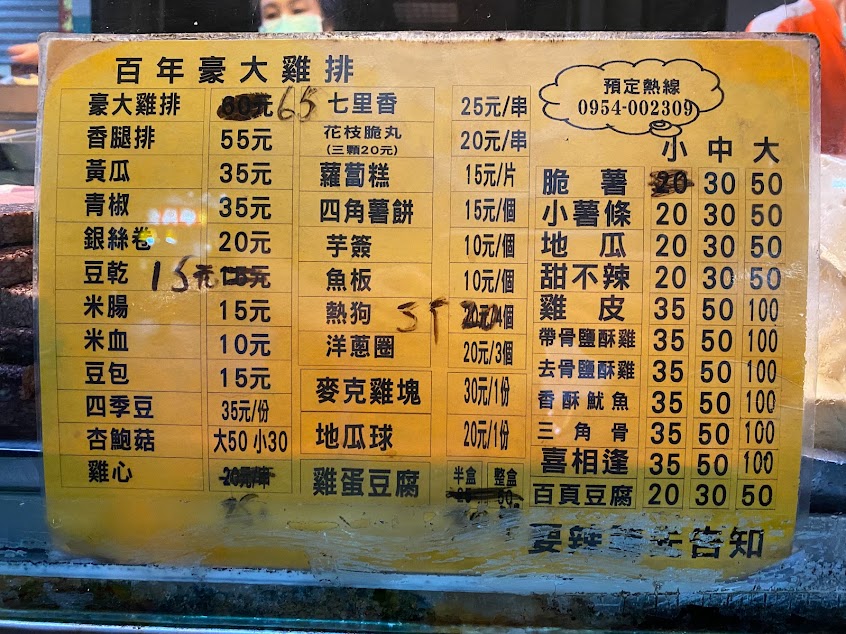 百年豪大雞排
豪大雞排 65
香腿排 55元
黃瓜 35元
青椒 35元
銀絲卷 20元
豆乾 15元
米腸 15元
米血 10元
豆包 15元
四季豆 35元/份
杏鮑菇 大50 小30
雞心 20元/串
七里香 25元/串
花枝脆丸 20元/串
(三顆20元)
蘿蔔糕 15元/片
四角薯餅 15元/個
芋簽 10元/個
魚板 10元/個
熱狗
洋蔥圈 20元/3個
麥克雞塊 30元/1份
地瓜球 20元/1份
雞蛋豆腐 半盒 整盒
50
預定熱線
0954-002309
小 中 大
脆薯 20 30 50
小薯條 20 30 50
地瓜 20 30 50
甜不辣 20 30 50
雞皮 35 50 100
帶骨鹽酥雞 35 50 100
去骨鹽酥雞 35 50 100
香酥魷魚 35 50 100
三角骨 35 50 100
喜相逢 35 50 100
百頁豆腐 20 30 50
告知